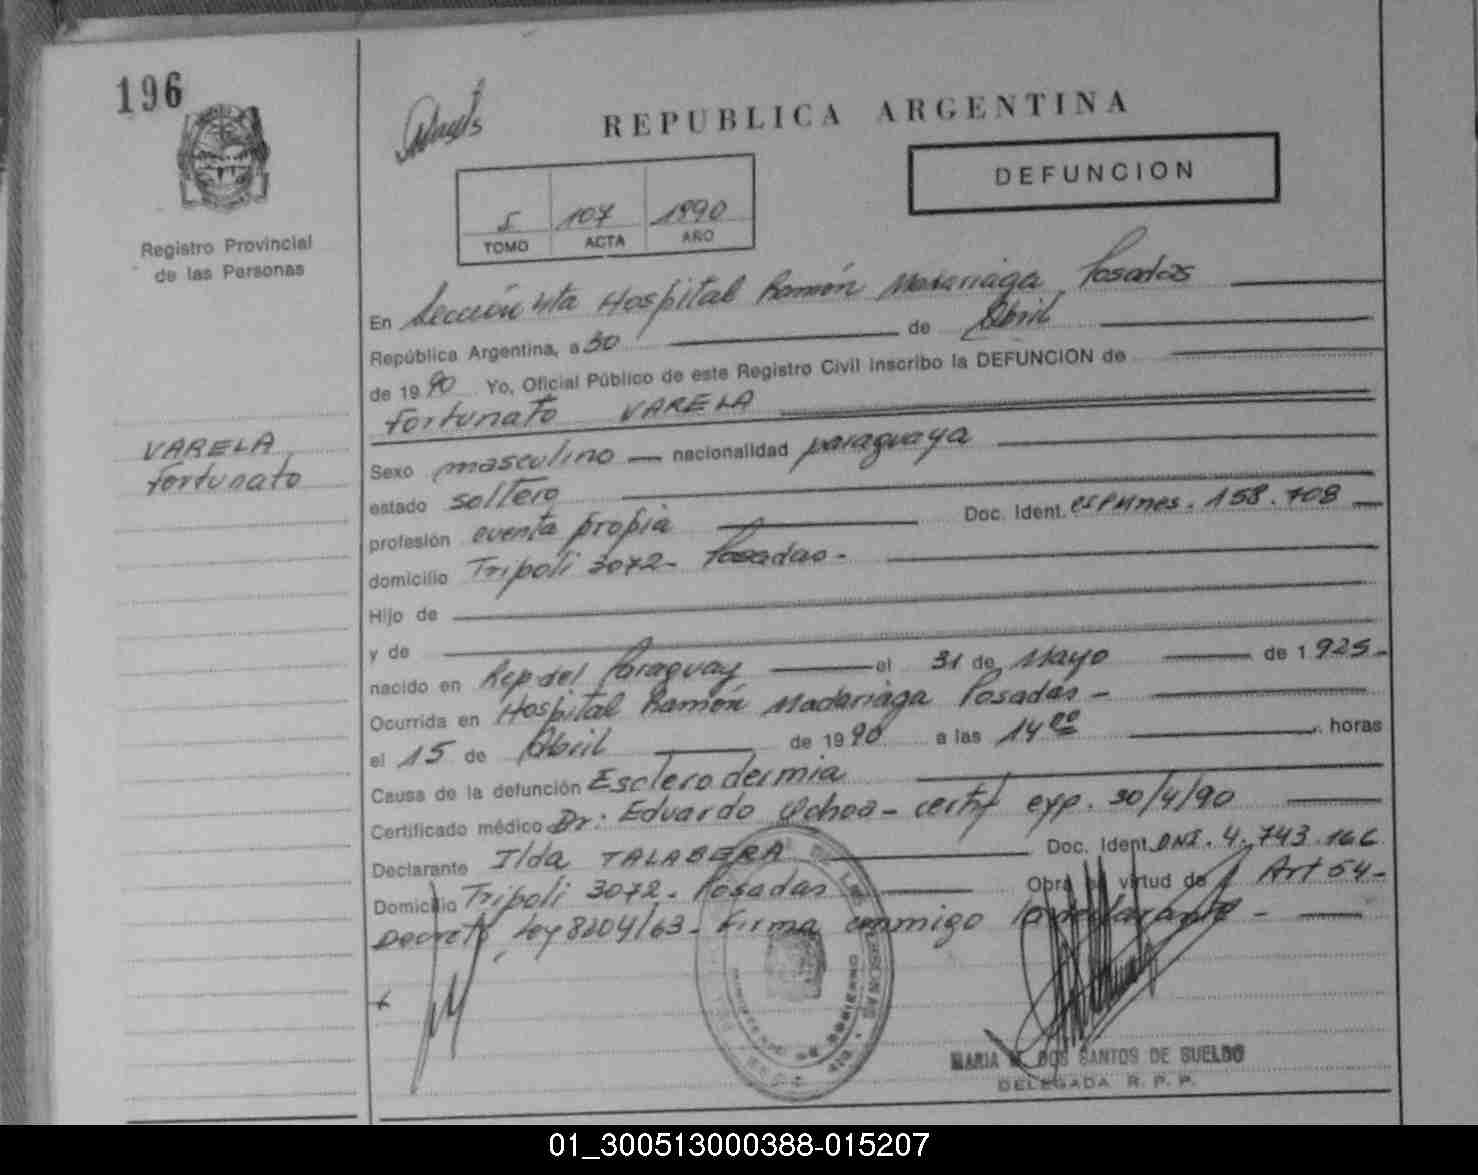 196
REPUBLICA ARGENTINA
DEFUNCION
I 107 1990
TOMO ACTA AÑO
Registro Provincial
de las Personas
VARELA
Fortunato
En Sección 4ta Hospital Ramón Madariaga Posadas
República Argentina, a 30 de Abril
de 1990 Yo, Oficial Público de este Registro Civil inscribo la DEFUNCION de
Fortunato VARELA
Sexo masculino nacionalidad paraguaya
estado soltero
profesión cuenta propia Doc. Ident. 158.708
domicilio Tripoli 3072- Posadas-
Hijo de
y de
nacido en Rep del Paraguay el 31 de Mayo de 1925-
Ocurrida en Hospital Ramón Madariaga Posadas-
el 15 de Abril de 1990 a las 14 00 horas
Causa de la defunción Esclerodermia
Certificado médico Dr: Eduardo Ochoa- certif exp. 30/4/90
Declarante Ilda TALABERA Doc. Ident. DNI. 4.743.166
Domicilio Tripoli 3072- Posadas Obra en virtud de Art 54-
Decreto Ley 8204/63- Firma conmigo la declarante-
MARIA M. DOS SANTOS DE SUELDO
DELEGADA R. P. P.
01_300513000388-015207